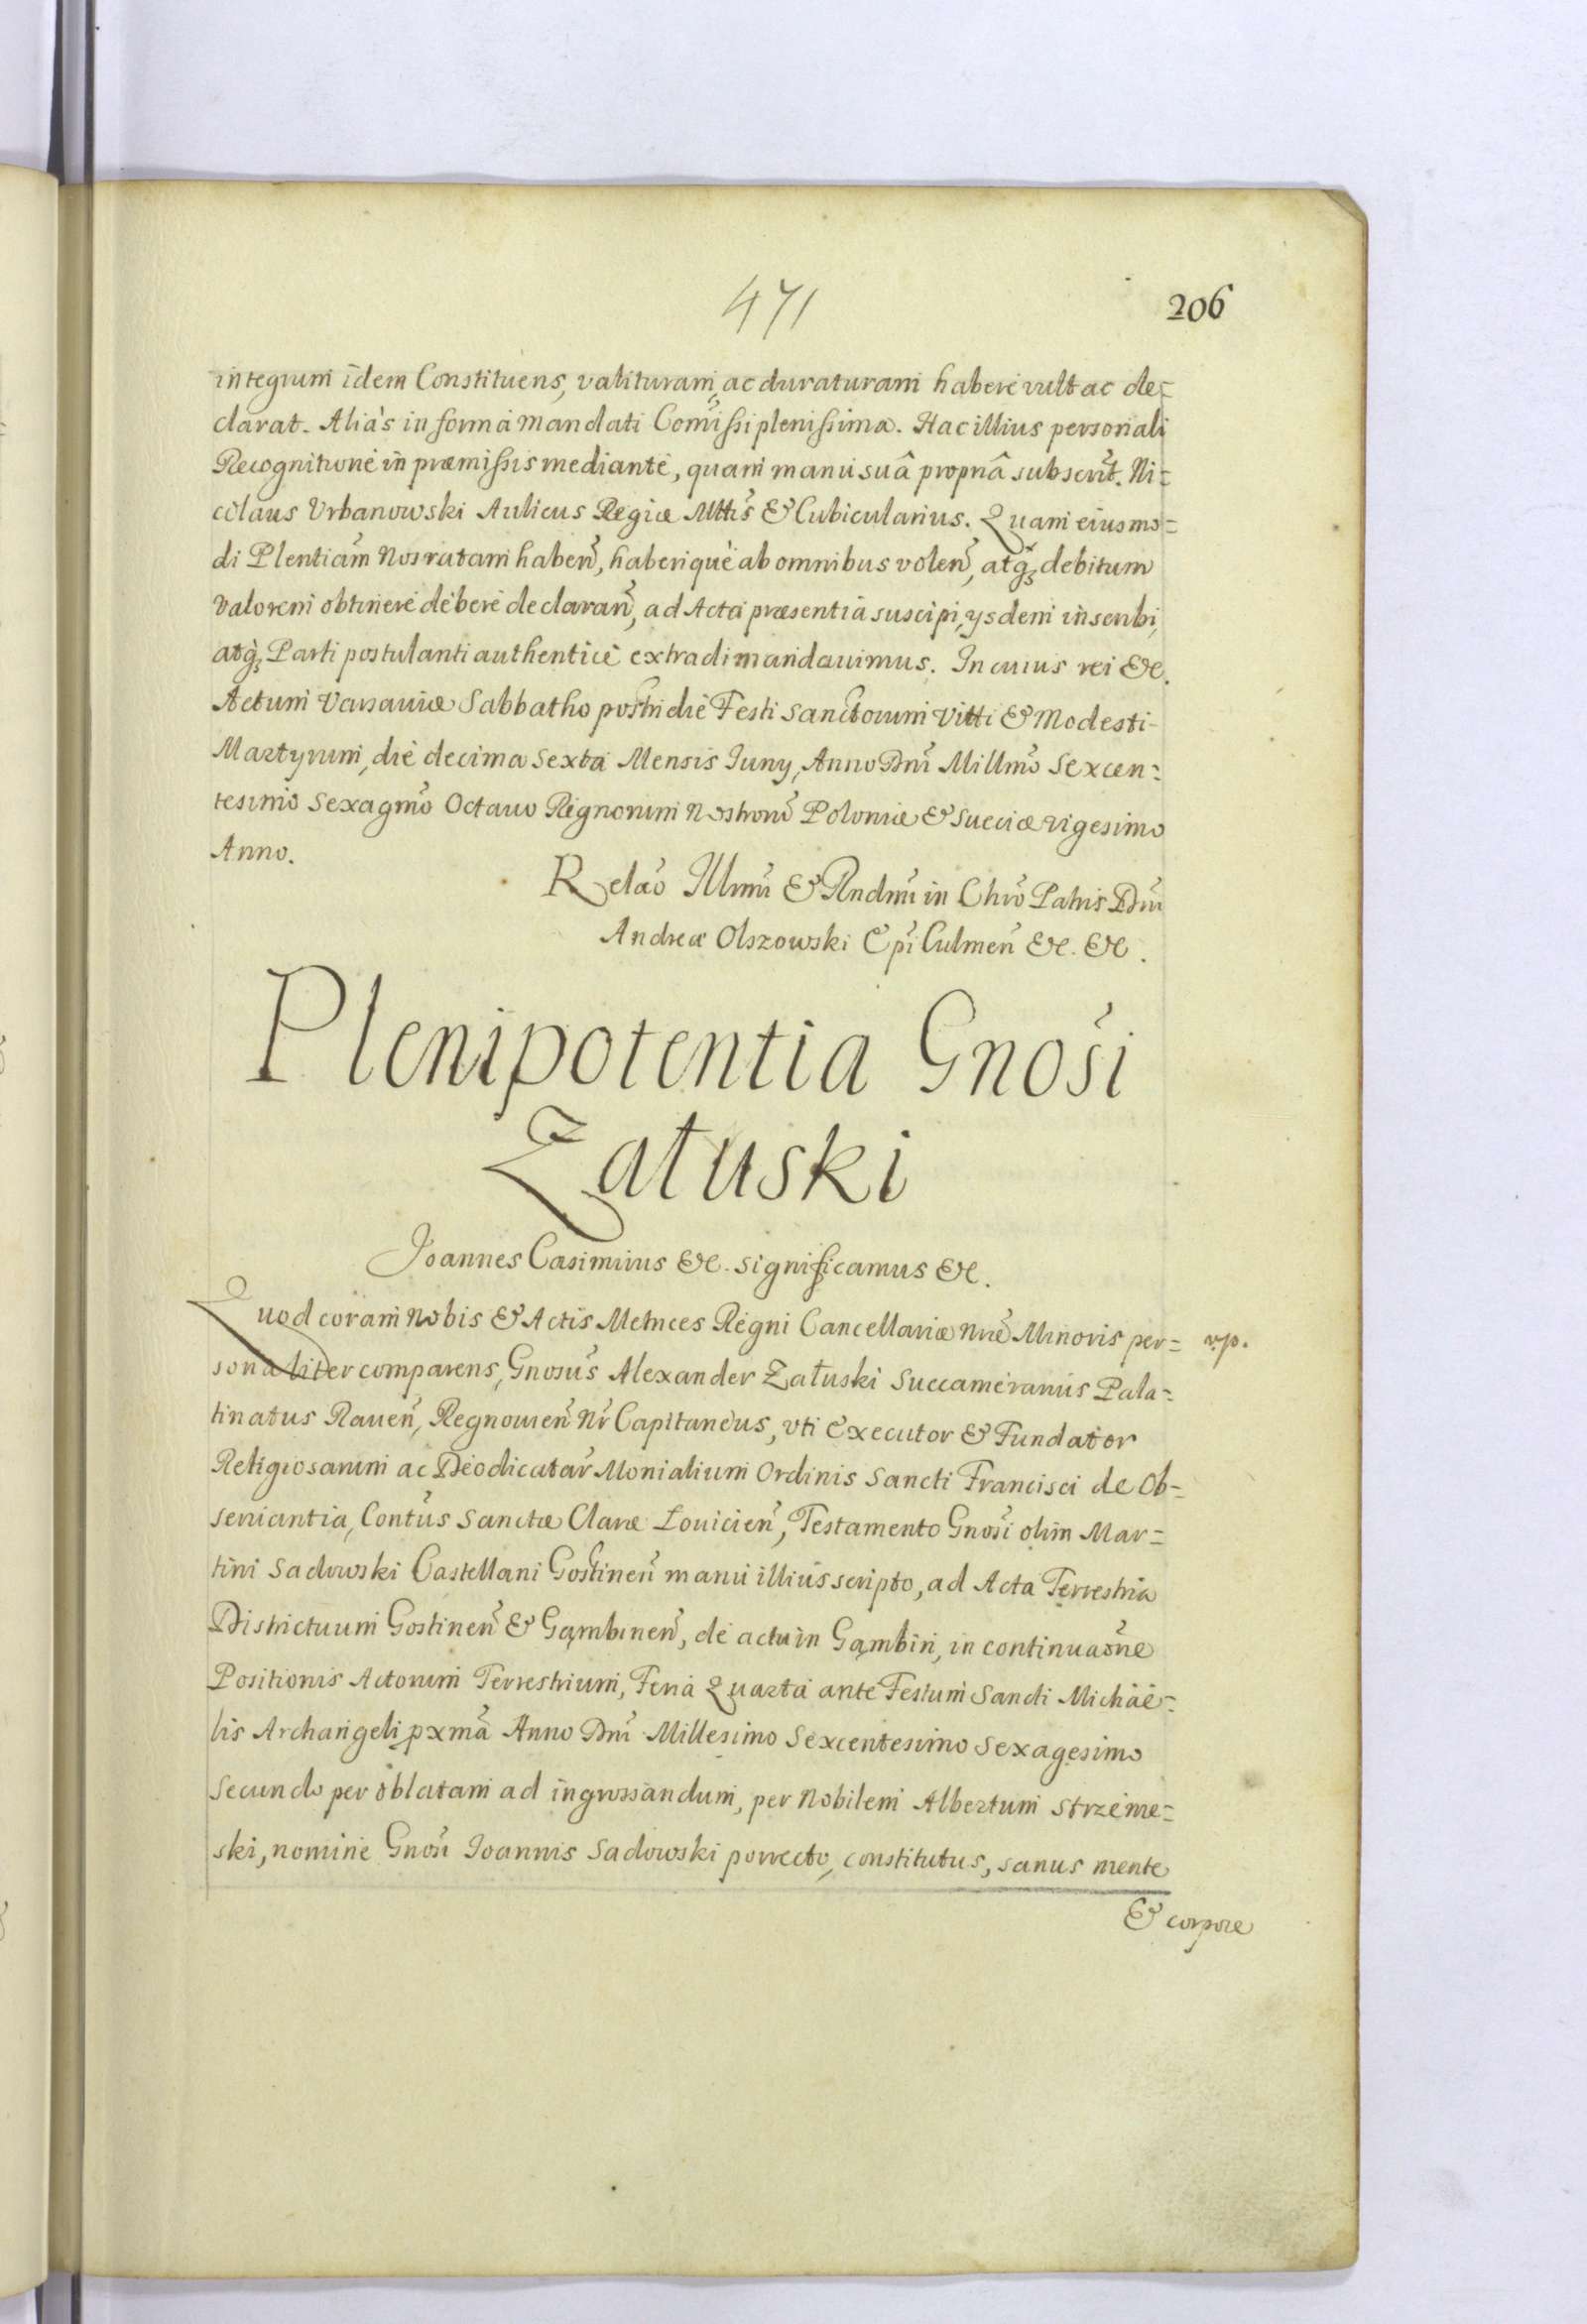 471
206
integrum idem Constituens, valituram, ac duraturam habere vult ac de=
clarat. Aliàs in forma mandati Com̃issi plenissima. Hac illius personali
Recognitione in præmissis mediante, quam manu suâ propriâ subscrit̃. Ni=
colaus Vrbanowski Aulicus Regiæ Mttis̃ & Cubicularius. Quam eiusmo=
di Plentiam̃ Nos ratam haben̄, haberique ab omnibus volen̄, atq̃ debitum
valorem obtinere debere declaran̄, ad Acta præsentia suscipi, ysdem inscribi,
atq̃ Parti postulanti authenticè extradi mandauimus. In cuius rei &c.
Actum Varsauiæ Sabbatho postridie Festi Sanctorum Vitti & Modesti
Martyrum, die decima Sexta Mensis Iuny, Anno Dnĩ Millmõ Sexcen=
tesimo Sexagmõ Octauo Regnorum Nostrorũ Poloniæ & Sueciæ vigesimo
Anno.
Relaõ Illmĩ & Rndmĩ in Chrõ Patris Dnĩ
Andreæ Olszowski Epĩ Culmen̄ &c. &c.
Plenipotentia Gnosĩ
Załuski
Joannes Casimirus &c. significamus &c.
Quod coram Nobis & Actis Metrices Regni Cancellariæ Nrẽ Minoris per=
v.p.
sonaliter comparens, Gnosus̃ Alexander Załuski Succamerarius Pala=
tinatus Rauen̄, Regnouien̄ Nr̃ Capitaneus, vti Executor & Fundator
Religiosarum ac Deodicatar̃ Monialium Ordinis Sancti Francisci de Ob=
seruantia, Contus̃ Sanctæ Claræ Louicien̄, Testamento Gnosĩ olim Mar=
tini Sadowski Castellani Gostinen̄ manu illius scripto, ad Acta Terrestria
Districtuum Gostinen̄ & Gąmbinen̄, de actu in Gąmbin, in continuaõne
Positionis Actorum Terrestrium, Feria Quarta ante Festum Sancti Michaë=
lis Archangeli pxmã Anno Dnĩ Millesimo Sexcentesimo Sexagesimo
Secundo per oblatam ad ingrossandum, per Nobilem Albertum Strzeme=
ski, nomine Gnosĩ Joannis Sadowski porrecto, constitutus, sanus mente
& corpore